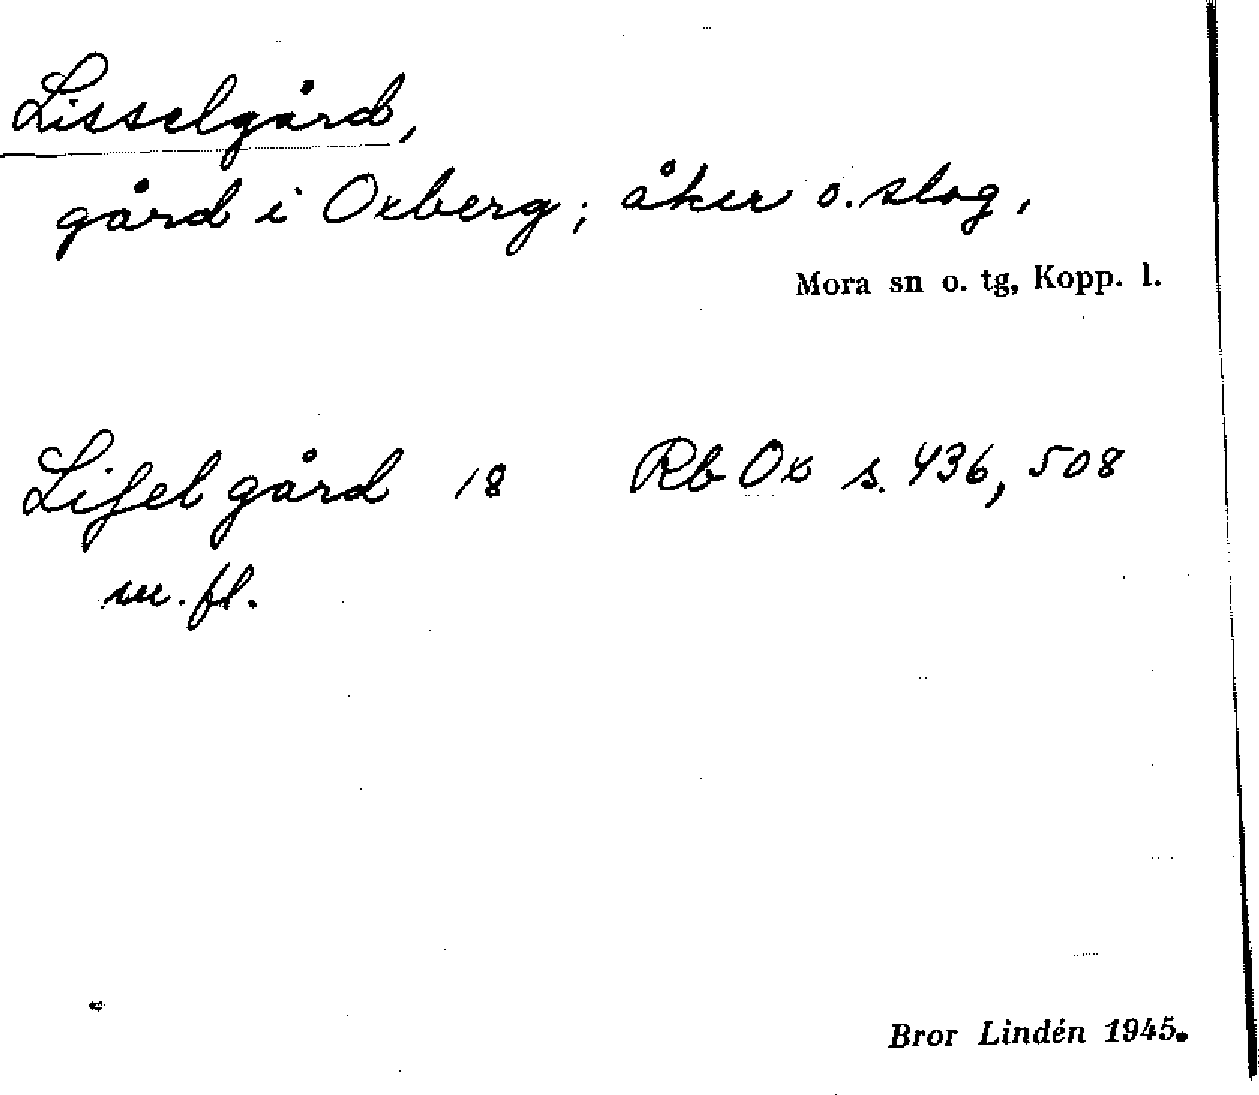 Lisselgård,
gård i Oxberg; åker o. slog,
Mora sn o. tg, Kopp. l.
Liſsel gård 18 Rb Ox s. 436, 508
m. fl.
Bror Lindén 1945.